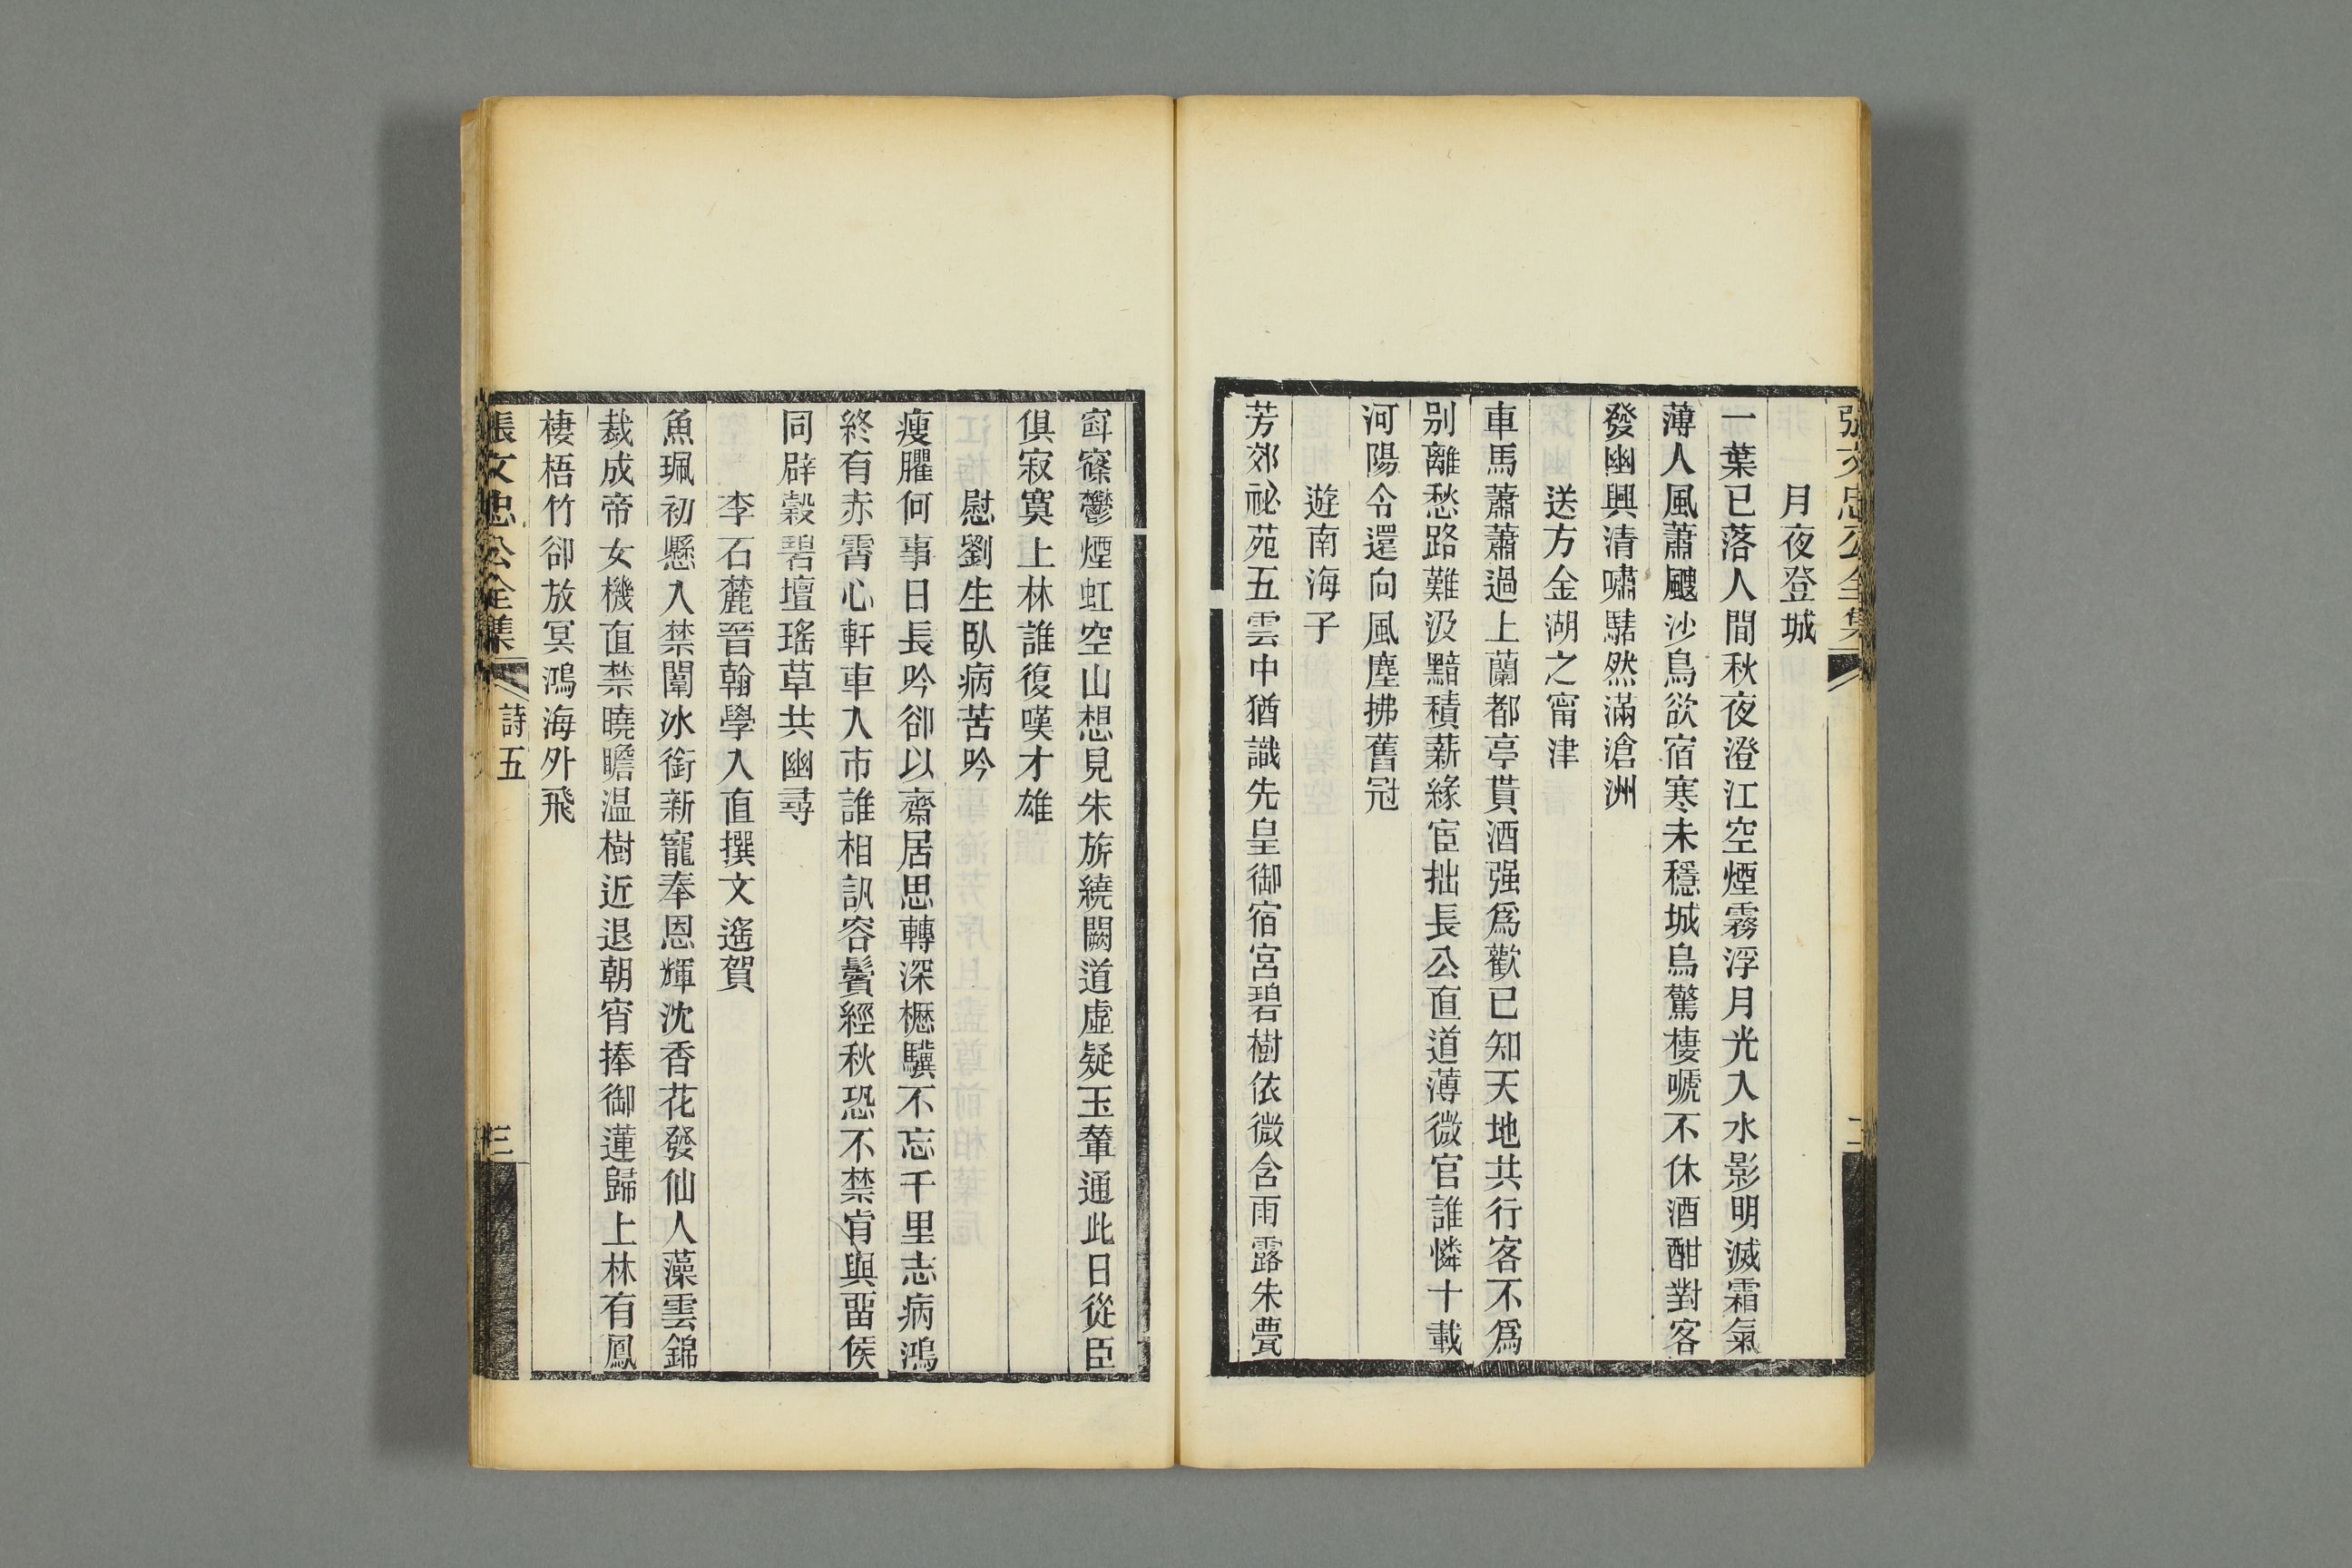 張文忠公全集
二
月夜登城
一葉已落人間秋夜澄江空煙霧浮月光入水影明滅霜氣
薄人風蕭颼沙鳥欲宿寒未穩城烏驚棲嗁不休酒酣對客
發幽興清嘯騞然滿滄洲
送方金湖之甯津
車馬蕭蕭過上蘭都亭貰酒强爲歡已知天地共行客不爲
別離愁路難汲黯積薪緣宦拙長公直道薄微官誰憐十載
河陽令還向風塵拂舊冠
遊南海子
芳郊祕苑五雲中猶識先皇御宿宮碧樹依微含雨露朱甍
窅窱鬱煙虹空山想見朱旂繞闕道虛疑玉輦通此日從臣
俱寂寞上林誰復嘆才雄
慰劉生臥病苦吟
瘦臞何事日長吟卻以齋居思轉深櫪驥不忘千里志病鴻
終有赤霄心軒車入市誰相訊容鬢經秋恐不禁肯與畱侯
同辟穀碧壇瑤草共幽尋
李石麓晉翰學入直撰文遙賀
魚珮初懸入禁闈冰銜新寵奉恩輝沈香花發仙人藻雲錦
裁成帝女機直禁曉瞻温樹近退朝宵捧御蓮歸上林有鳳
棲梧竹卻放冥鴻海外飛
張文忠公全集
詩五
三